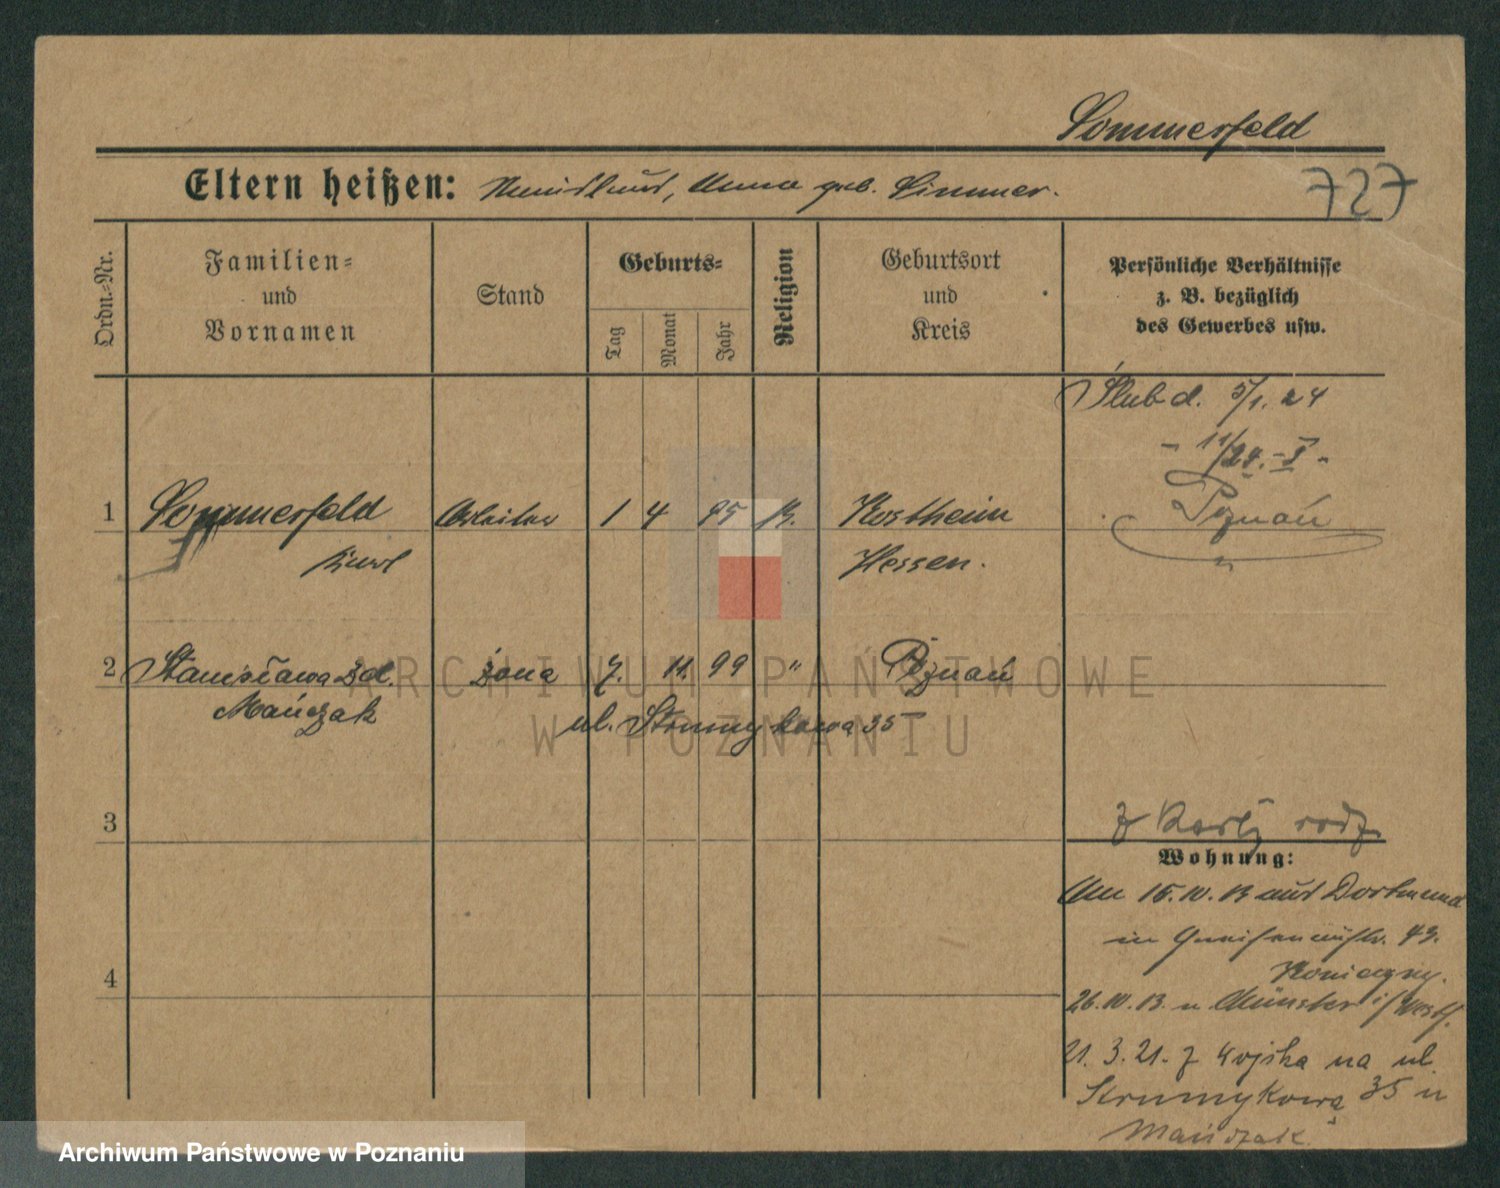 Sommerfeld
Eltern heißen: Anna geb. Simmer.
727
Ordn.-Nr.
Familien-
und
Vornamen
Stand
Geburts-
Tag
Monat
Jahr
Religion
Geburtsort
und
Kreis
Persönliche Verhältnisse
z. B. bezüglich
des Gewerbes usw.
Ślub d. 5/1. 24
- 11/24.-I -
Poznań
1 Sommerfeld Arbeiter 1 4 95 K. Kostheim
Kurl Hessen.
2 Stanisława zd. żona 7. 11. 99 " Poznań
Mańczak ul. Strumykowa 35
3
z Karty rodz.
Wohnung:
Am 15.10.13 aus Dortmund
in 43.
26.10.13. n. Münster i/Westf.
4
21.3.21. z wojska na ul.
Strumykowa 35 u
Mańczak.
ARCHIWUM PAŃSTWOWE
W POZNANIU
Archiwum Państwowe w Poznaniu